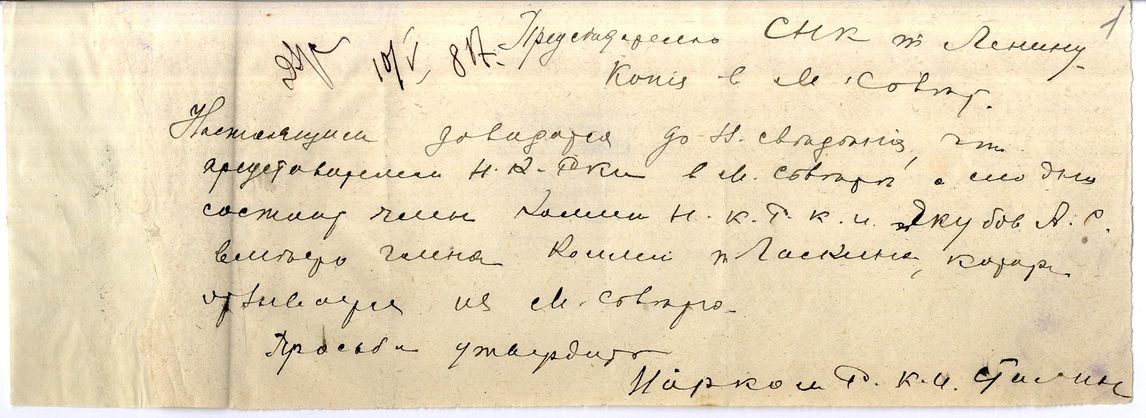 1
Председателю СНК т Ленину
10/V, 817.
Копия в М. Совнар.
Настоящим доводится до В. сведения, что
представителем Н.К.Рки в М. Совнарк с сего дня
состоит член Коллии Н.К.Р.К.И. Якубов А.С.
вместо члена Коллии т Ласкина, котор
отзывается из М. Совнарк.
Просьба утвердить
Нарком Р.К.И. Сталин